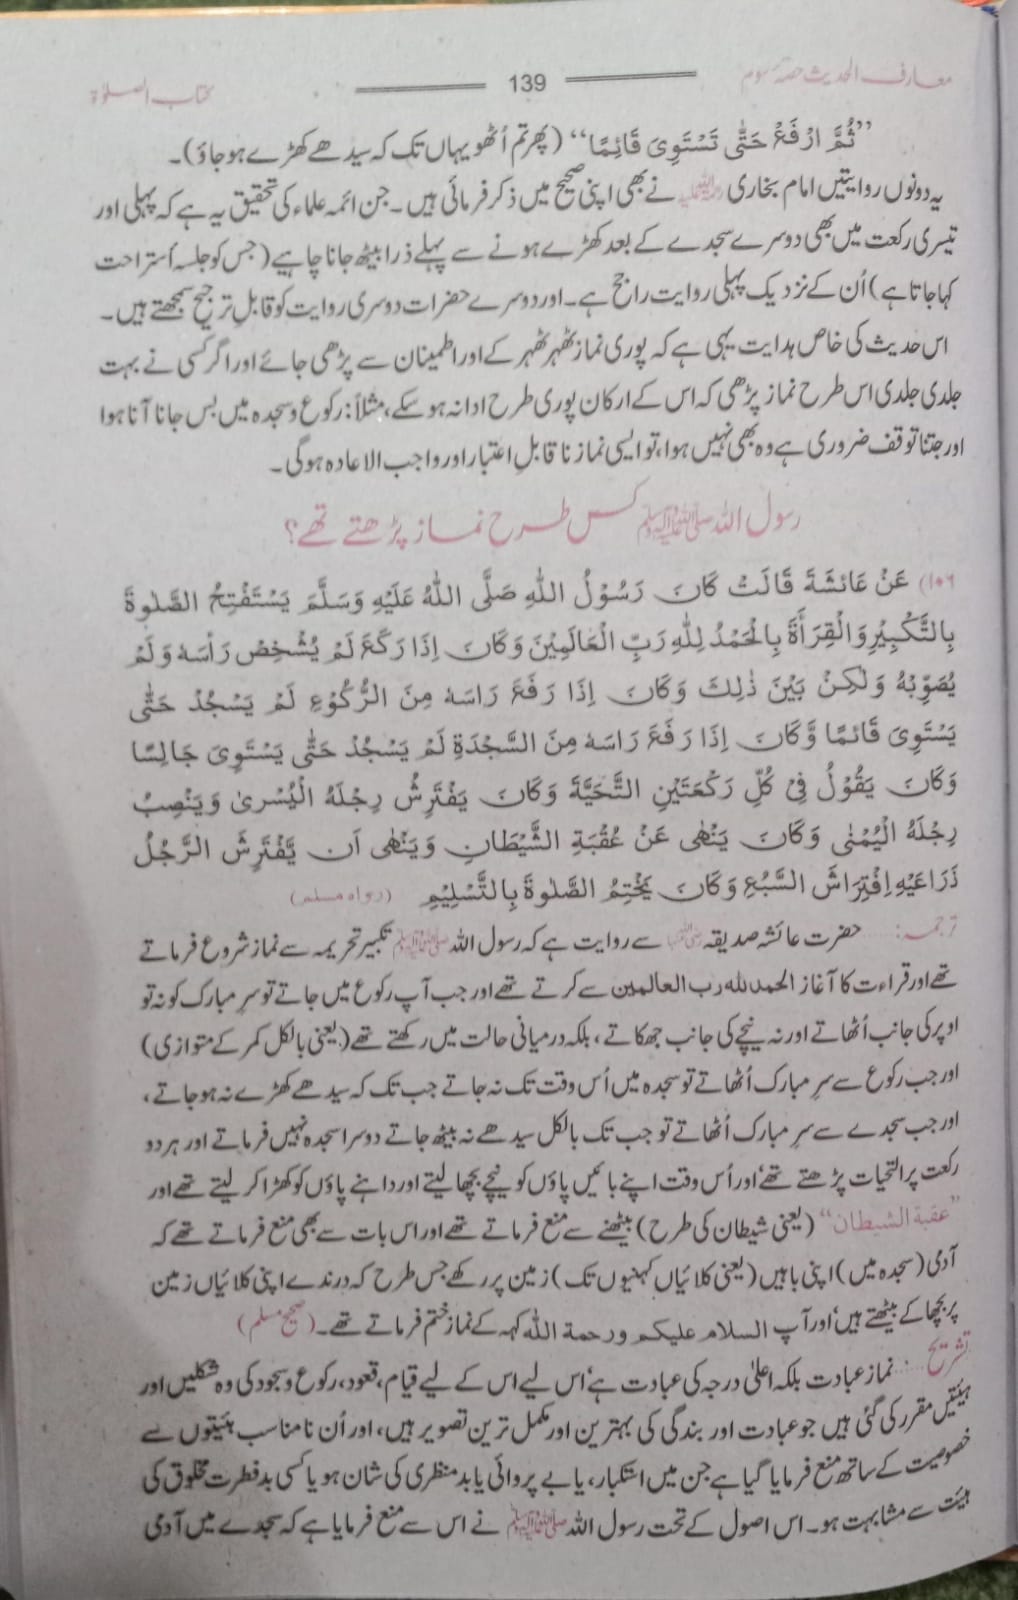 معارف الحدیث حصہ سوم 139 کتاب الصلوٰۃ
”ثُمَّ ارْفَعْ حَتّٰى تَسْتَوِىَ قَائِمًا“ (پھر تم اُٹھو یہاں تک کہ سیدھے کھڑے ہو جاؤ)۔
یہ دونوں روایتیں امام بخاری رحمۃ اللہ علیہ نے بھی اپنی صحیح میں ذکر فرمائی ہیں۔ جن ائمہ علماء کی تحقیق یہ ہے کہ پہلی اور
تیسری رکعت میں بھی دوسرے سجدے کے بعد کھڑے ہونے سے پہلے ذرا بیٹھ جانا چاہیے (جس کو جلسہ اُستراحت
کہا جاتا ہے) اُن کے نزدیک پہلی روایت راجح ہے۔ اور دوسرے حضرات دوسری روایت کو قابلِ ترجیح سمجھتے ہیں۔
اس حدیث کی خاص ہدایت یہی ہے کہ پوری نماز ٹھہر ٹھہر کے اور اطمینان سے پڑھی جائے اور اگر کسی نے بہت
جلدی جلدی اس طرح نماز پڑھی کہ اس کے ارکان پوری طرح ادا نہ ہو سکے، مثلاً: رکوع و سجدہ میں بس جانا آنا ہوا
اور جتنا توقف ضروری ہے وہ بھی نہیں ہوا، تو ایسی نماز نا قابلِ اعتبار اور واجب الاعادہ ہوگی۔
رسول اللہ ﷺ کس طرح نماز پڑھتے تھے؟
۱۰۶) عَنْ عَائِشَةَ قَالَتْ كَانَ رَسُوْلُ اللهِ صَلَّى اللهُ عَلَيْهِ وَسَلَّمَ يَسْتَفْتِحُ الصَّلٰوةَ
بِالتَّكْبِيْرِ وَالْقِرَأَةَ بِالْحَمْدُ لِلّٰهِ رَبِّ الْعَالَمِيْنَ وَكَانَ اِذَا رَكَعَ لَمْ يُشْخِصْ رَأْسَهٗ وَلَمْ
يُصَوِّبْهُ وَلٰكِنْ بَيْنَ ذٰلِكَ وَكَانَ اِذَا رَفَعَ رَاسَهٗ مِنَ الرُّكُوْعِ لَمْ يَسْجُدْ حَتّٰى
يَسْتَوِىَ قَائِمًا وَّكَانَ اِذَا رَفَعَ رَاسَهٗ مِنَ السَّجْدَةِ لَمْ يَسْجُدْ حَتّٰى يَسْتَوِىَ جَالِسًا
وَكَانَ يَقُوْلُ فِىْ كُلِّ رَكْعَتَيْنِ التَّحَيَّةَ وَكَانَ يَفْتَرِشُ رِجْلَهُ الْيُسْرىٰ وَيَنْصِبُ
رِجْلَهُ الْيُمْنٰى وَكَانَ يَنْهٰى عَنْ عُقْبَةِ الشَّيْطَانِ وَيَنْهٰى اَن يَّفْتَرِشَ الرَّجُلُ
ذَرَاعَيْهِ اِفْتِرَاشَ السَّبُعِ وَكَانَ يَخْتِمُ الصَّلٰوةَ بِالتَّسْلِيْمِ (رواہ مسلم)
ترجمہ:.....حضرت عائشہ صدیقہ رضی اللہ عنہا سے روایت ہے کہ رسول اللہ ﷺ تکبیر تحریمہ سے نماز شروع فرماتے
تھے اور قراءت کا آغاز الحمد للہ رب العالمین سے کرتے تھے اور جب آپ رکوع میں جاتے تو سرِ مبارک کو نہ تو
اوپر کی جانب اُٹھاتے اور نہ نیچے کی جانب جھکاتے، بلکہ درمیانی حالت میں رکھتے تھے (یعنی بالکل کمر کے متوازی)
اور جب رکوع سے سرِ مبارک اُٹھاتے تو سجدہ میں اُس وقت تک نہ جاتے جب تک کہ سیدھے کھڑے نہ ہو جاتے،
اور جب سجدے سے سرِ مبارک اُٹھاتے تو جب تک بالکل سیدھے نہ بیٹھ جاتے دوسرا سجدہ نہیں فرماتے اور ہر دو
رکعت پر التحیات پڑھتے تھے‘ اور اُس وقت اپنے بائیں پاؤں کو نیچے بچھا لیتے اور داہنے پاؤں کو کھڑا کر لیتے تھے اور
”عقبة الشیطان“ (یعنی شیطان کی طرح) بیٹھنے سے منع فرماتے تھے اور اس بات سے بھی منع فرماتے تھے کہ
آدمی (سجدہ میں) اپنی باہیں (یعنی کلائیاں کہنیوں تک) زمین پر رکھے جس طرح کہ درندے اپنی کلائیاں زمین
پر بچھا کے بیٹھتے ہیں‘ اور آپ السلام علیکم ورحمة اللّٰہ کہہ کے نماز ختم فرماتے تھے۔ (صحیح مسلم)
تشریح.....: نماز عبادت بلکہ اعلیٰ درجہ کی عبادت ہے‘ اس لیے اس کے لیے قیام، قعود، رکوع و سجود کی وہ شکلیں اور
ہیئتیں مقرر کی گئی ہیں جو عبادت اور بندگی کی بہترین اور مکمل ترین تصویر ہیں، اور اُن نامناسب ہیئتوں سے
خصوصیت کے ساتھ منع فرمایا گیا ہے جن میں استکبار، یا بے پروائی یا بدمنظری کی شان ہو یا کسی بدفطرت مخلوق کی
ہیئت سے مشابہت ہو۔ اس اصول کے تحت رسول اللہ ﷺ نے اس سے منع فرمایا ہے کہ سجدے میں آدمی